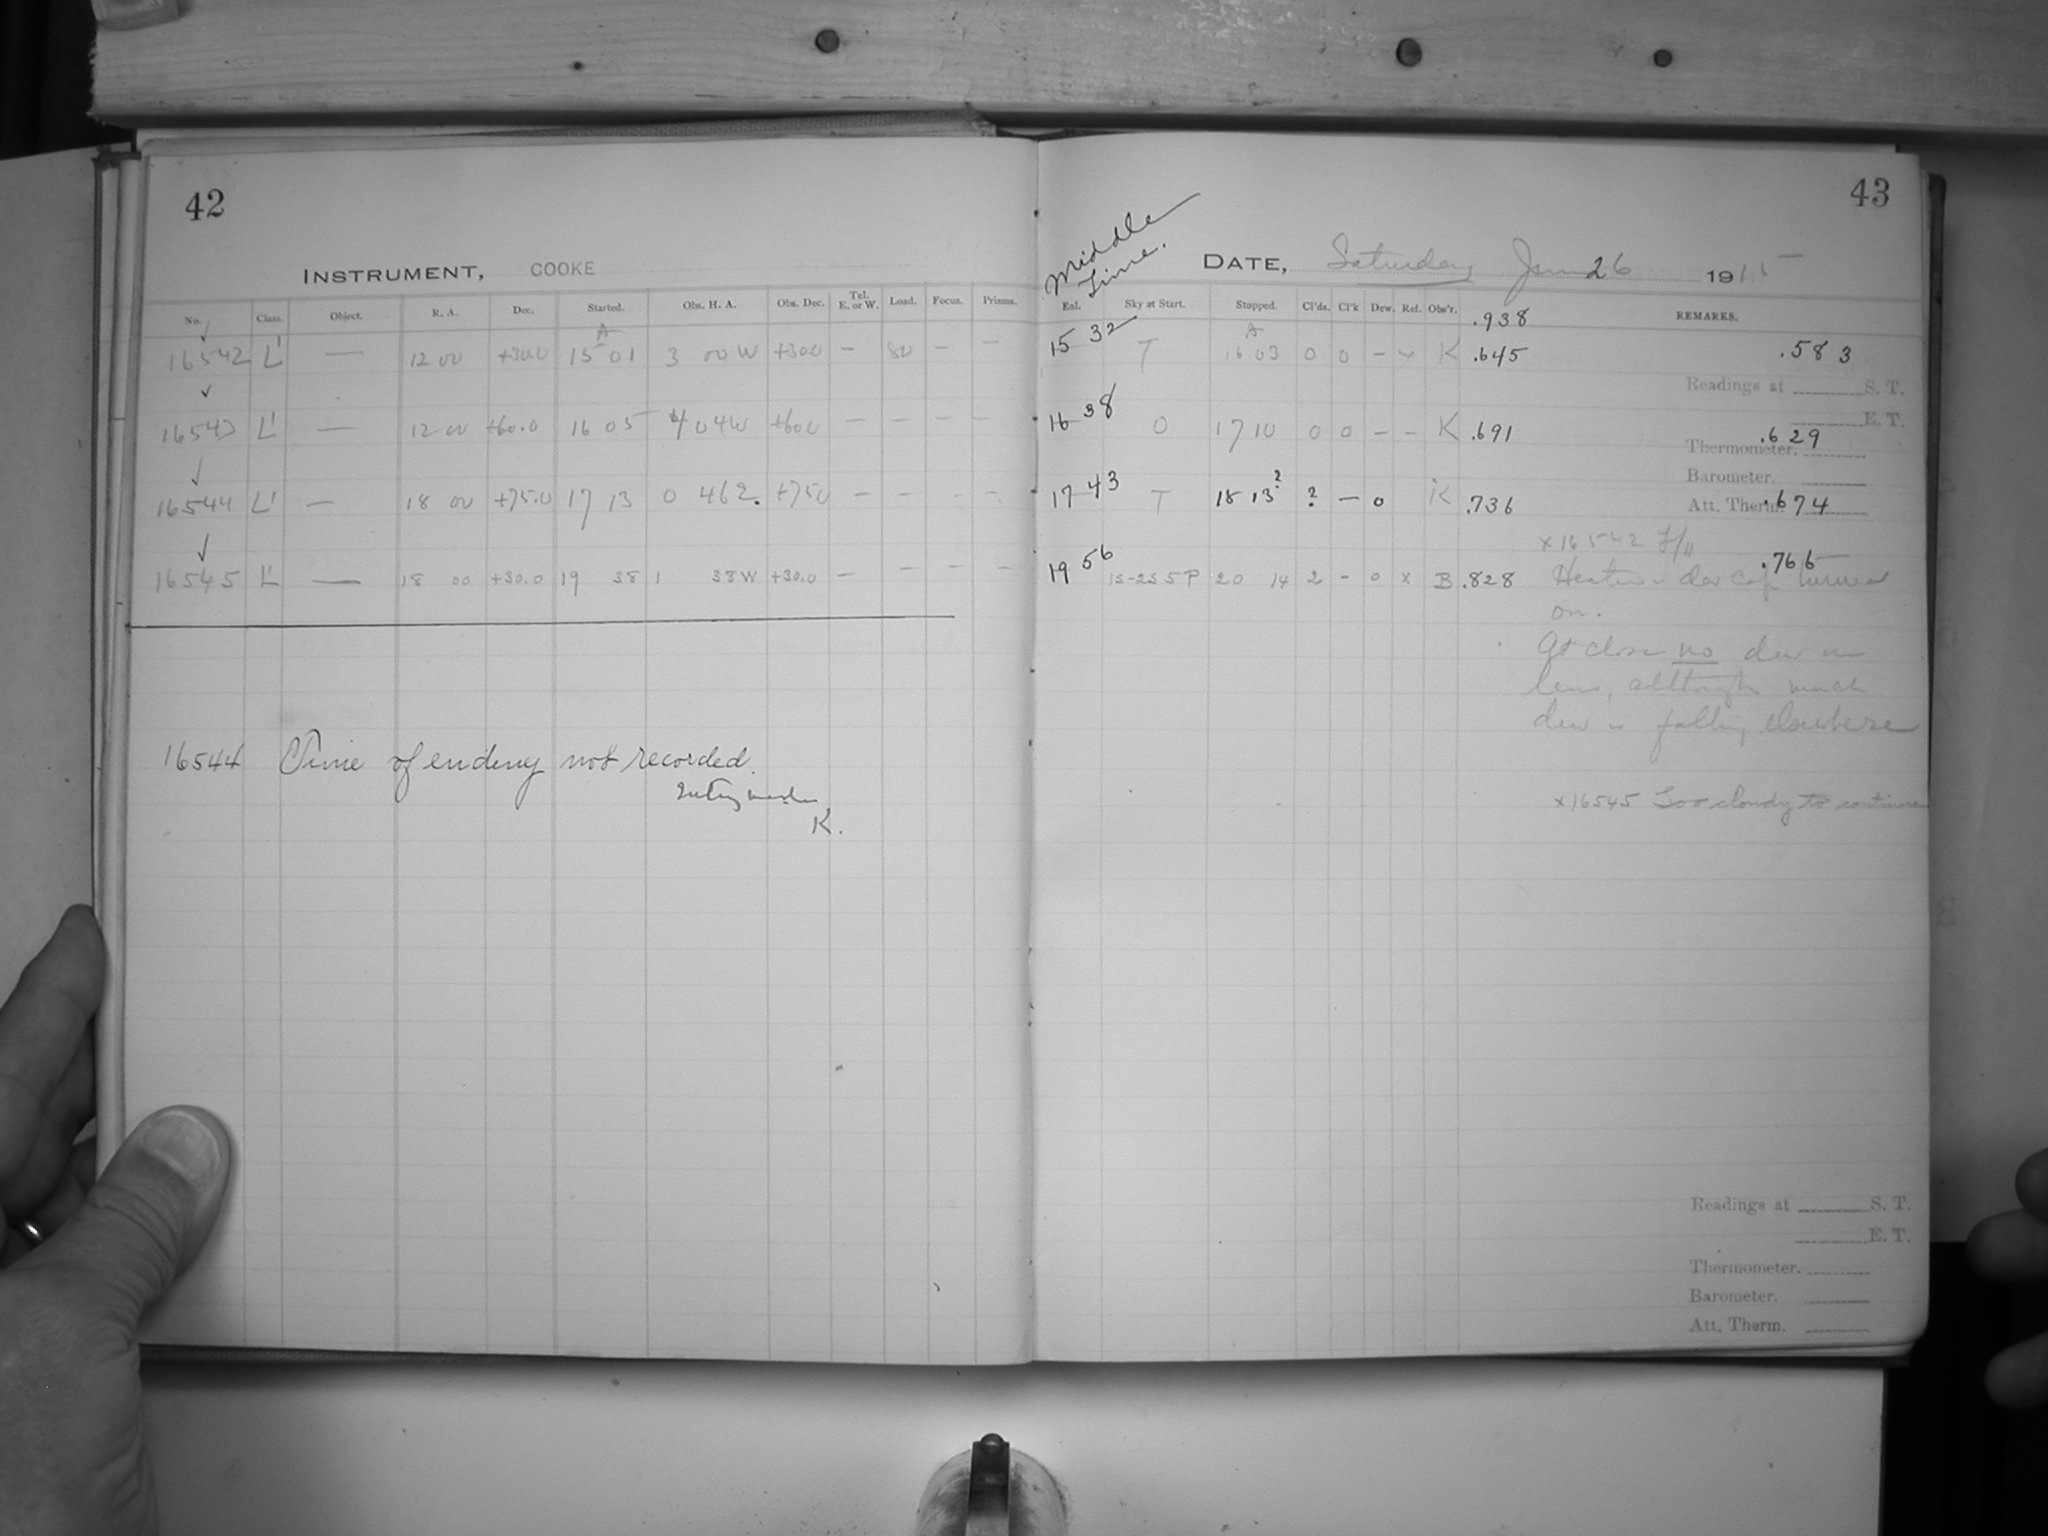 42
43
INSTRUMENT, COOKE
Middle Time.
DATE, Saturday June 26 1915
No. Class. Object. R. A. Dec. Started. Obs. H. A. Obs. Dec. Tel. E. or W. Load. Focus. Prisms. Eal. Sky at Start. Stopped. Cl'ds. Cl'k Dew. Ref. Obs'r. .938 REMARKS.
16542 L' — 12 00 +30.0 15 01 3 00 W +30.0 — 80 — — 15 32 T 16 03 0 0 – x K .645 .583
Readings at S. T.
E. T.
16543 L' — 12 00 +60.0 16 05 4 04 W +60.0 — — — — 16 38 0 17 10 0 0 – – K .691 .629
Thermometer.
Barometer.
16544 L' — 18 00 +75.0 17 13 0 46 E. +75.0 — — — — 17 43 T 18 13? ? – 0 K .736 Att. Therm. .674
x 16542
16545 L' — 18 00 +30.0 19 38 1 38 W +30.0 — — — — 19 56 1S-2S 5P 20 14 2 – 0 x B .828 Heater in dew cap turned .766
on.
At close no dew on
lens, although much
dew is falling elsewhere
16544 Time of ending not recorded.
K.
x 16545 Too cloudy to continue
Readings at S. T.
E. T.
Thermometer.
Barometer.
Att. Therm.